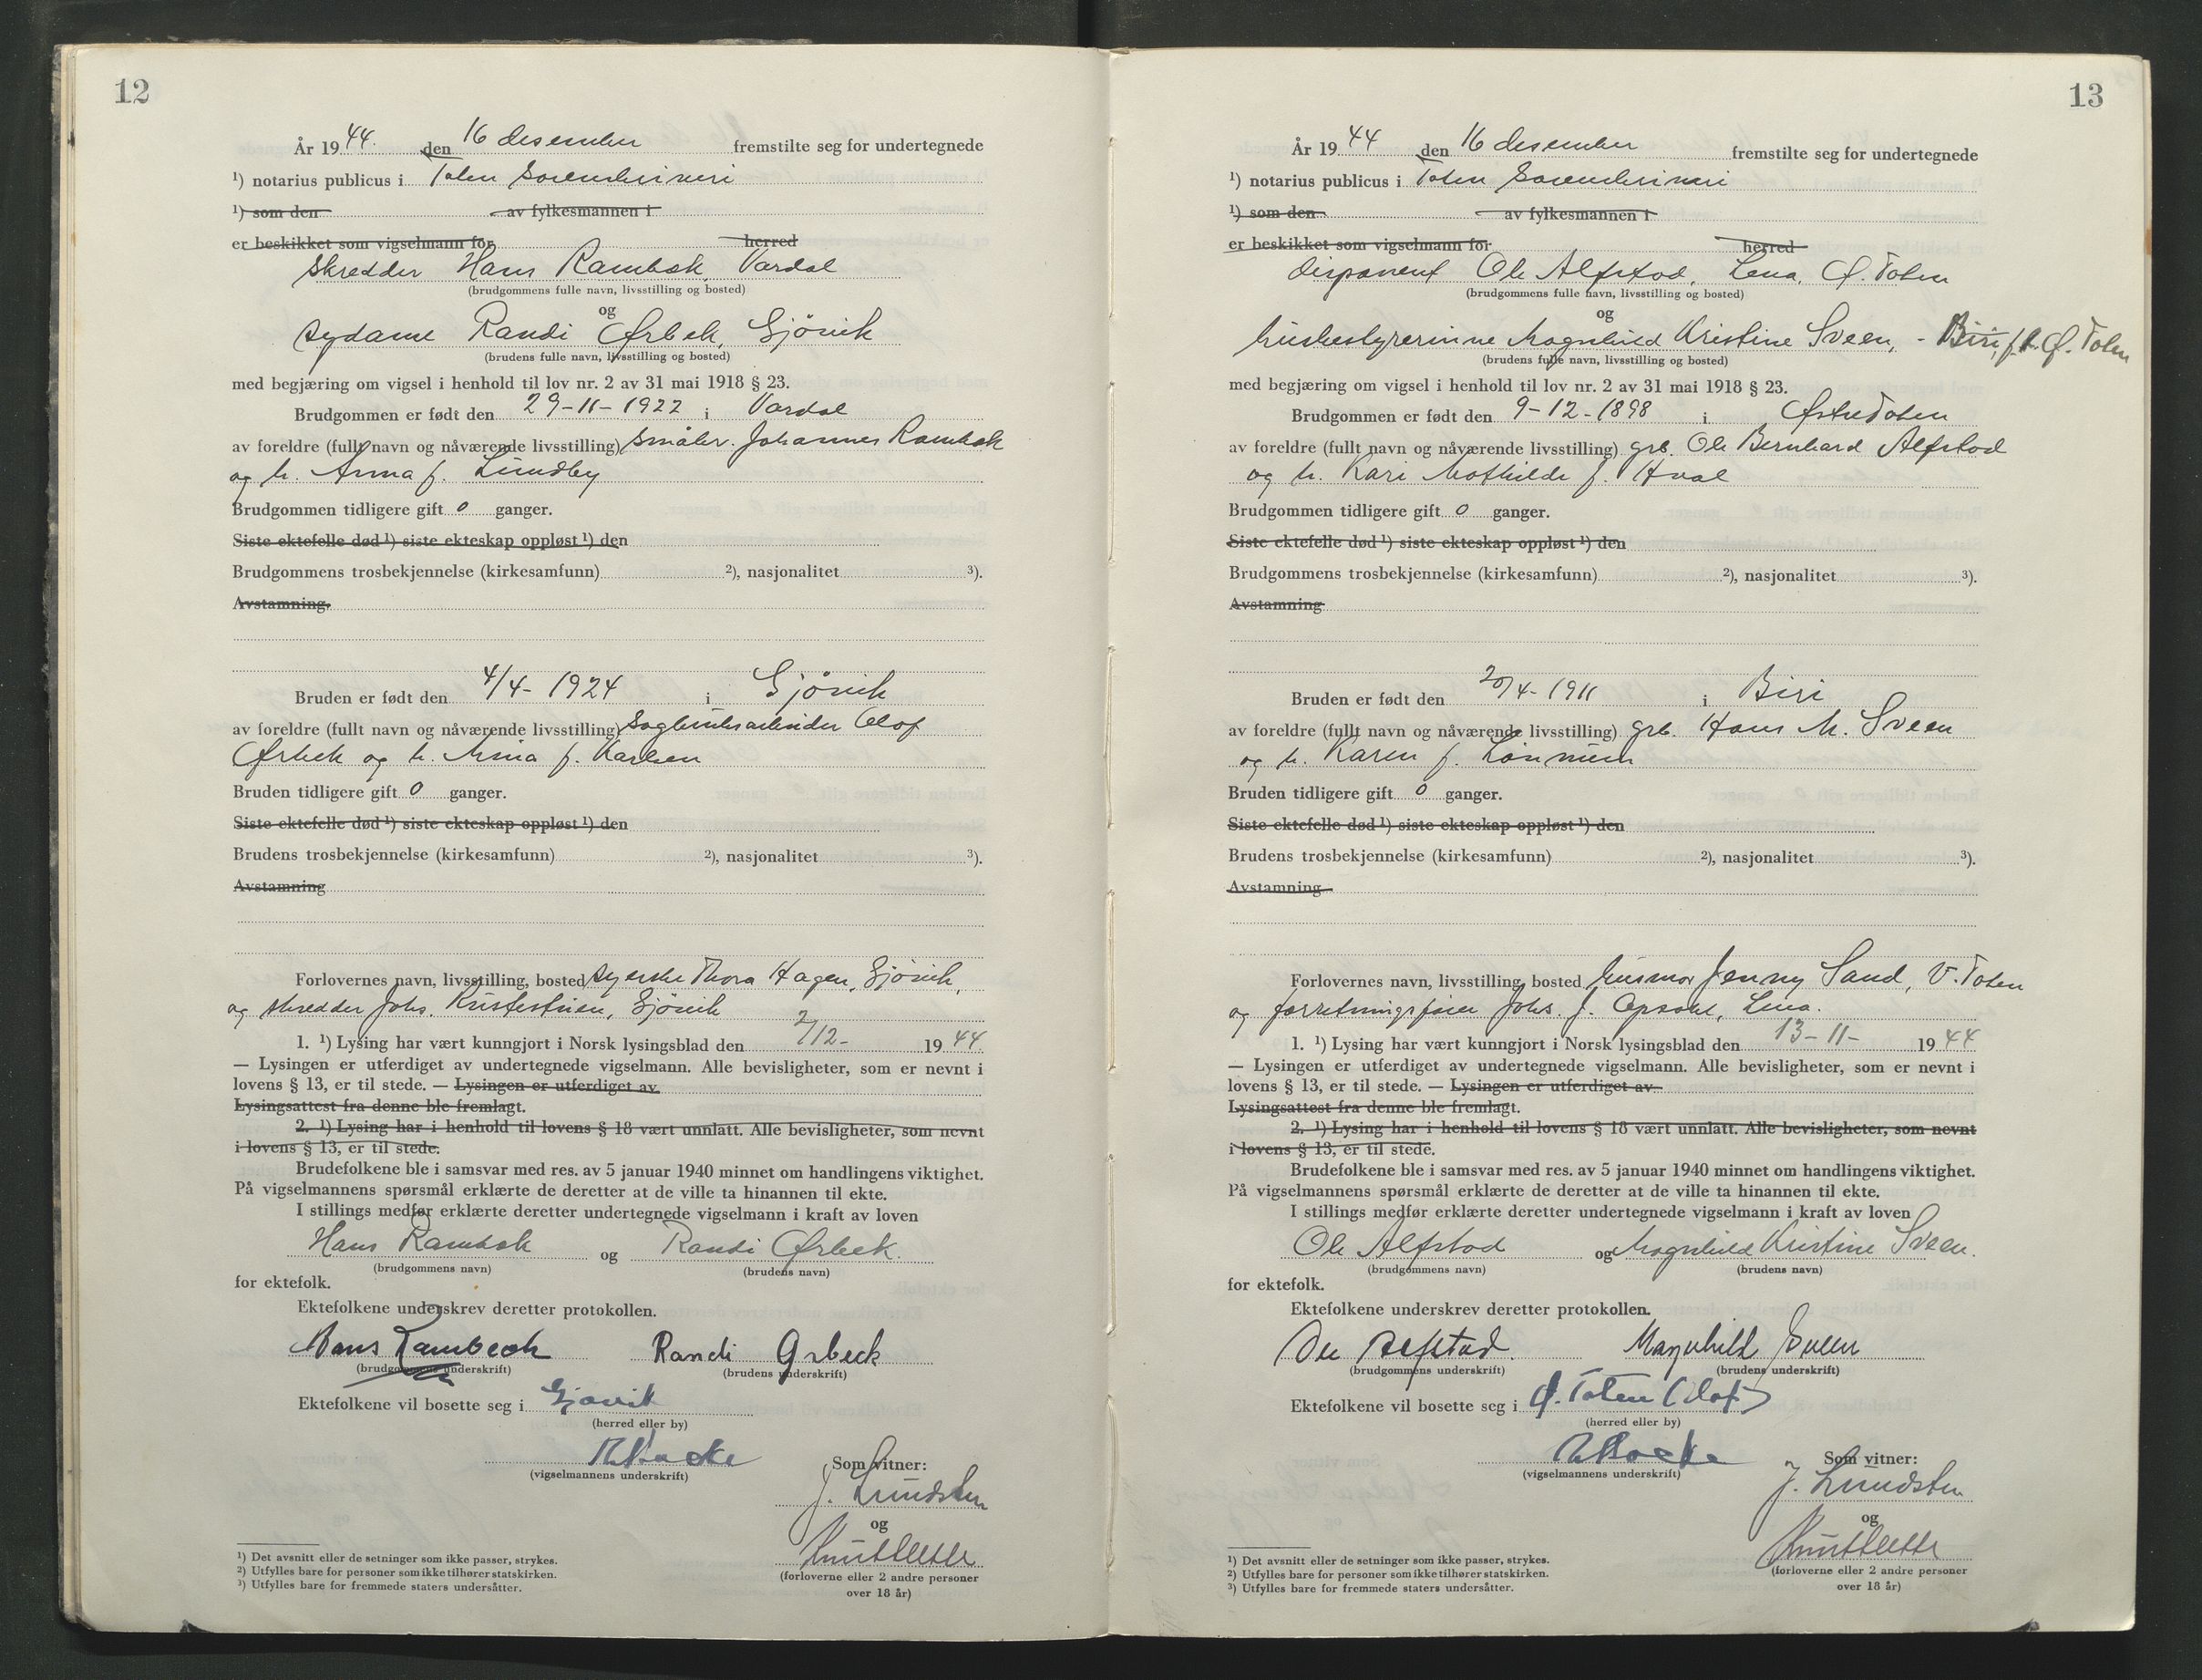 12
År 1944. den 16 desember fremstilte seg for undertegnede
¹) notarius publicus i Toten Sorenskriveri
¹) som den av fylkesmannen i
er beskikket som vigselmann for herred
Skredder Hans Rambæk, Vardal
(brudgommens fulle navn, livsstilling og bosted)
og
sydame Randi Ørbek, Gjövik
(brudens fulle navn, livsstilling og bosted)
med begjæring om vigsel i henhold til lov nr. 2 av 31 mai 1918 § 23.
Brudgommen er født den 29-11-1922 i Vardal
av foreldre (fullt navn og nåværende livsstilling) småbr. Johannes Rambæk
og h. Anna f. Lundby
Brudgommen tidligere gift 0 ganger.
Siste ektefelle død ¹) siste ekteskap oppløst ¹) den
Brudgommens trosbekjennelse (kirkesamfunn) ²), nasjonalitet ³).
Avstamning.
Bruden er født den 4/4-1924 i Gjövik
av foreldre (fullt navn og nåværende livsstilling) sagbruksarbeider Olof
Ørbek og h. Anna f. Karlsen
Bruden tidligere gift 0 ganger.
Siste ektefelle død ¹) siste ekteskap oppløst ¹) den
Brudens trosbekjennelse (kirkesamfunn) ²), nasjonalitet ³).
Avstamning
Forlovernes navn, livsstilling, bosted syerske Thora Hagen, Gjövik,
og skredder Johs. Gjövik
1. ¹) Lysing har vært kunngjort i Norsk lysingsblad den 2/12- 1944
— Lysingen er utferdiget av undertegnede vigselmann. Alle bevisligheter, som er nevnt i
lovens § 13, er til stede. — Lysingen er utferdiget av
Lysingsattest fra denne ble fremlagt.
2. ¹) Lysing har i henhold til lovens § 18 vært unnlatt. Alle bevisligheter, som nevnt
i lovens § 13, er til stede.
Brudefolkene ble i samsvar med res. av 5 januar 1940 minnet om handlingens viktighet.
På vigselmannens spørsmål erklærte de deretter at de ville ta hinannen til ekte.
I stillings medfør erklærte deretter undertegnede vigselmann i kraft av loven
Hans Rambæk og Randi Ørbek.
(brudgommens navn) (brudens navn)
for ektefolk.
Ektefolkene underskrev deretter protokollen.
Hans Rambæck Randi Ørbeck
(brudgommens underskrift) (brudens underskrift)
Ektefolkene vil bosette seg i Gjøvik
(herred eller by)
(vigselmannens underskrift)
Som vitner:
J. Lundsten
og
(forloverne eller 2 andre personer
over 18 år)
¹) Det avsnitt eller de setninger som ikke passer, strykes.
²) Utfylles bare for personer som ikke tilhører statskirken.
³) Utfylles bare for fremmede staters undersåtter.
13
År 1944 den 16 desember fremstilte seg for undertegnede
¹) notarius publicus i Toten Sorenskriveri
¹) som den av fylkesmannen i
er beskikket som vigselmann for herred
disponent Ole Alfstad, Lena, Ø. Toten
(brudgommens fulle navn, livsstilling og bosted)
og
husbestyrerinne Magnhild Kristine Sveen, - Biri, f.t. Ø. Toten
(brudens fulle navn, livsstilling og bosted)
med begjæring om vigsel i henhold til lov nr. 2 av 31 mai 1918 § 23.
Brudgommen er født den 9-12-1898 i Østre Toten
av foreldre (fullt navn og nåværende livsstilling) grb. Ole Bernhard Alfstad
og h. Kari Mathilde f. Hval
Brudgommen tidligere gift 0 ganger.
Siste ektefelle død ¹) siste ekteskap oppløst ¹) den
Brudgommens trosbekjennelse (kirkesamfunn) ²), nasjonalitet ³).
Avstamning
Bruden er født den 20/4-1911 i Biri
av foreldre (fullt navn og nåværende livsstilling) grb. Hans M. Sveen
og h. Karen f.
Bruden tidligere gift 0 ganger.
Siste ektefelle død ¹) siste ekteskap oppløst ¹) den
Brudens trosbekjennelse (kirkesamfunn) ²), nasjonalitet ³).
Avstamning
Forlovernes navn, livsstilling, bosted husmor Jenny Sand, V. Toten
og forretningsfører Johs. J. Opsahl, Lena.
1. ¹) Lysing har vært kunngjort i Norsk lysingsblad den 13-11- 1944
— Lysingen er utferdiget av undertegnede vigselmann. Alle bevisligheter, som er nevnt i
lovens § 13, er til stede. — Lysingen er utferdiget av
Lysingsattest fra denne ble fremlagt.
2. ¹) Lysing har i henhold til lovens § 18 vært unnlatt. Alle bevisligheter, som nevnt
i lovens § 13, er til stede.
Brudefolkene ble i samsvar med res. av 5 januar 1940 minnet om handlingens viktighet.
På vigselmannens spørsmål erklærte de deretter at de ville ta hinannen til ekte.
I stillings medfør erklærte deretter undertegnede vigselmann i kraft av loven
Ole Alfstad og Magnhild Kristine Sveen.
(brudgommens navn) (brudens navn)
for ektefolk.
Ektefolkene underskrev deretter protokollen.
Ole Alfstad. Magnhild Sveen
(brudgommens underskrift) (brudens underskrift)
Ektefolkene vil bosette seg i Ø. Toten
(herred eller by)
(vigselmannens underskrift)
Som vitner:
J. Lundsten
og
(forloverne eller 2 andre personer
over 18 år)
¹) Det avsnitt eller de setninger som ikke passer, strykes.
²) Utfylles bare for personer som ikke tilhører statskirken.
³) Utfylles bare for fremmede staters undersåtter.